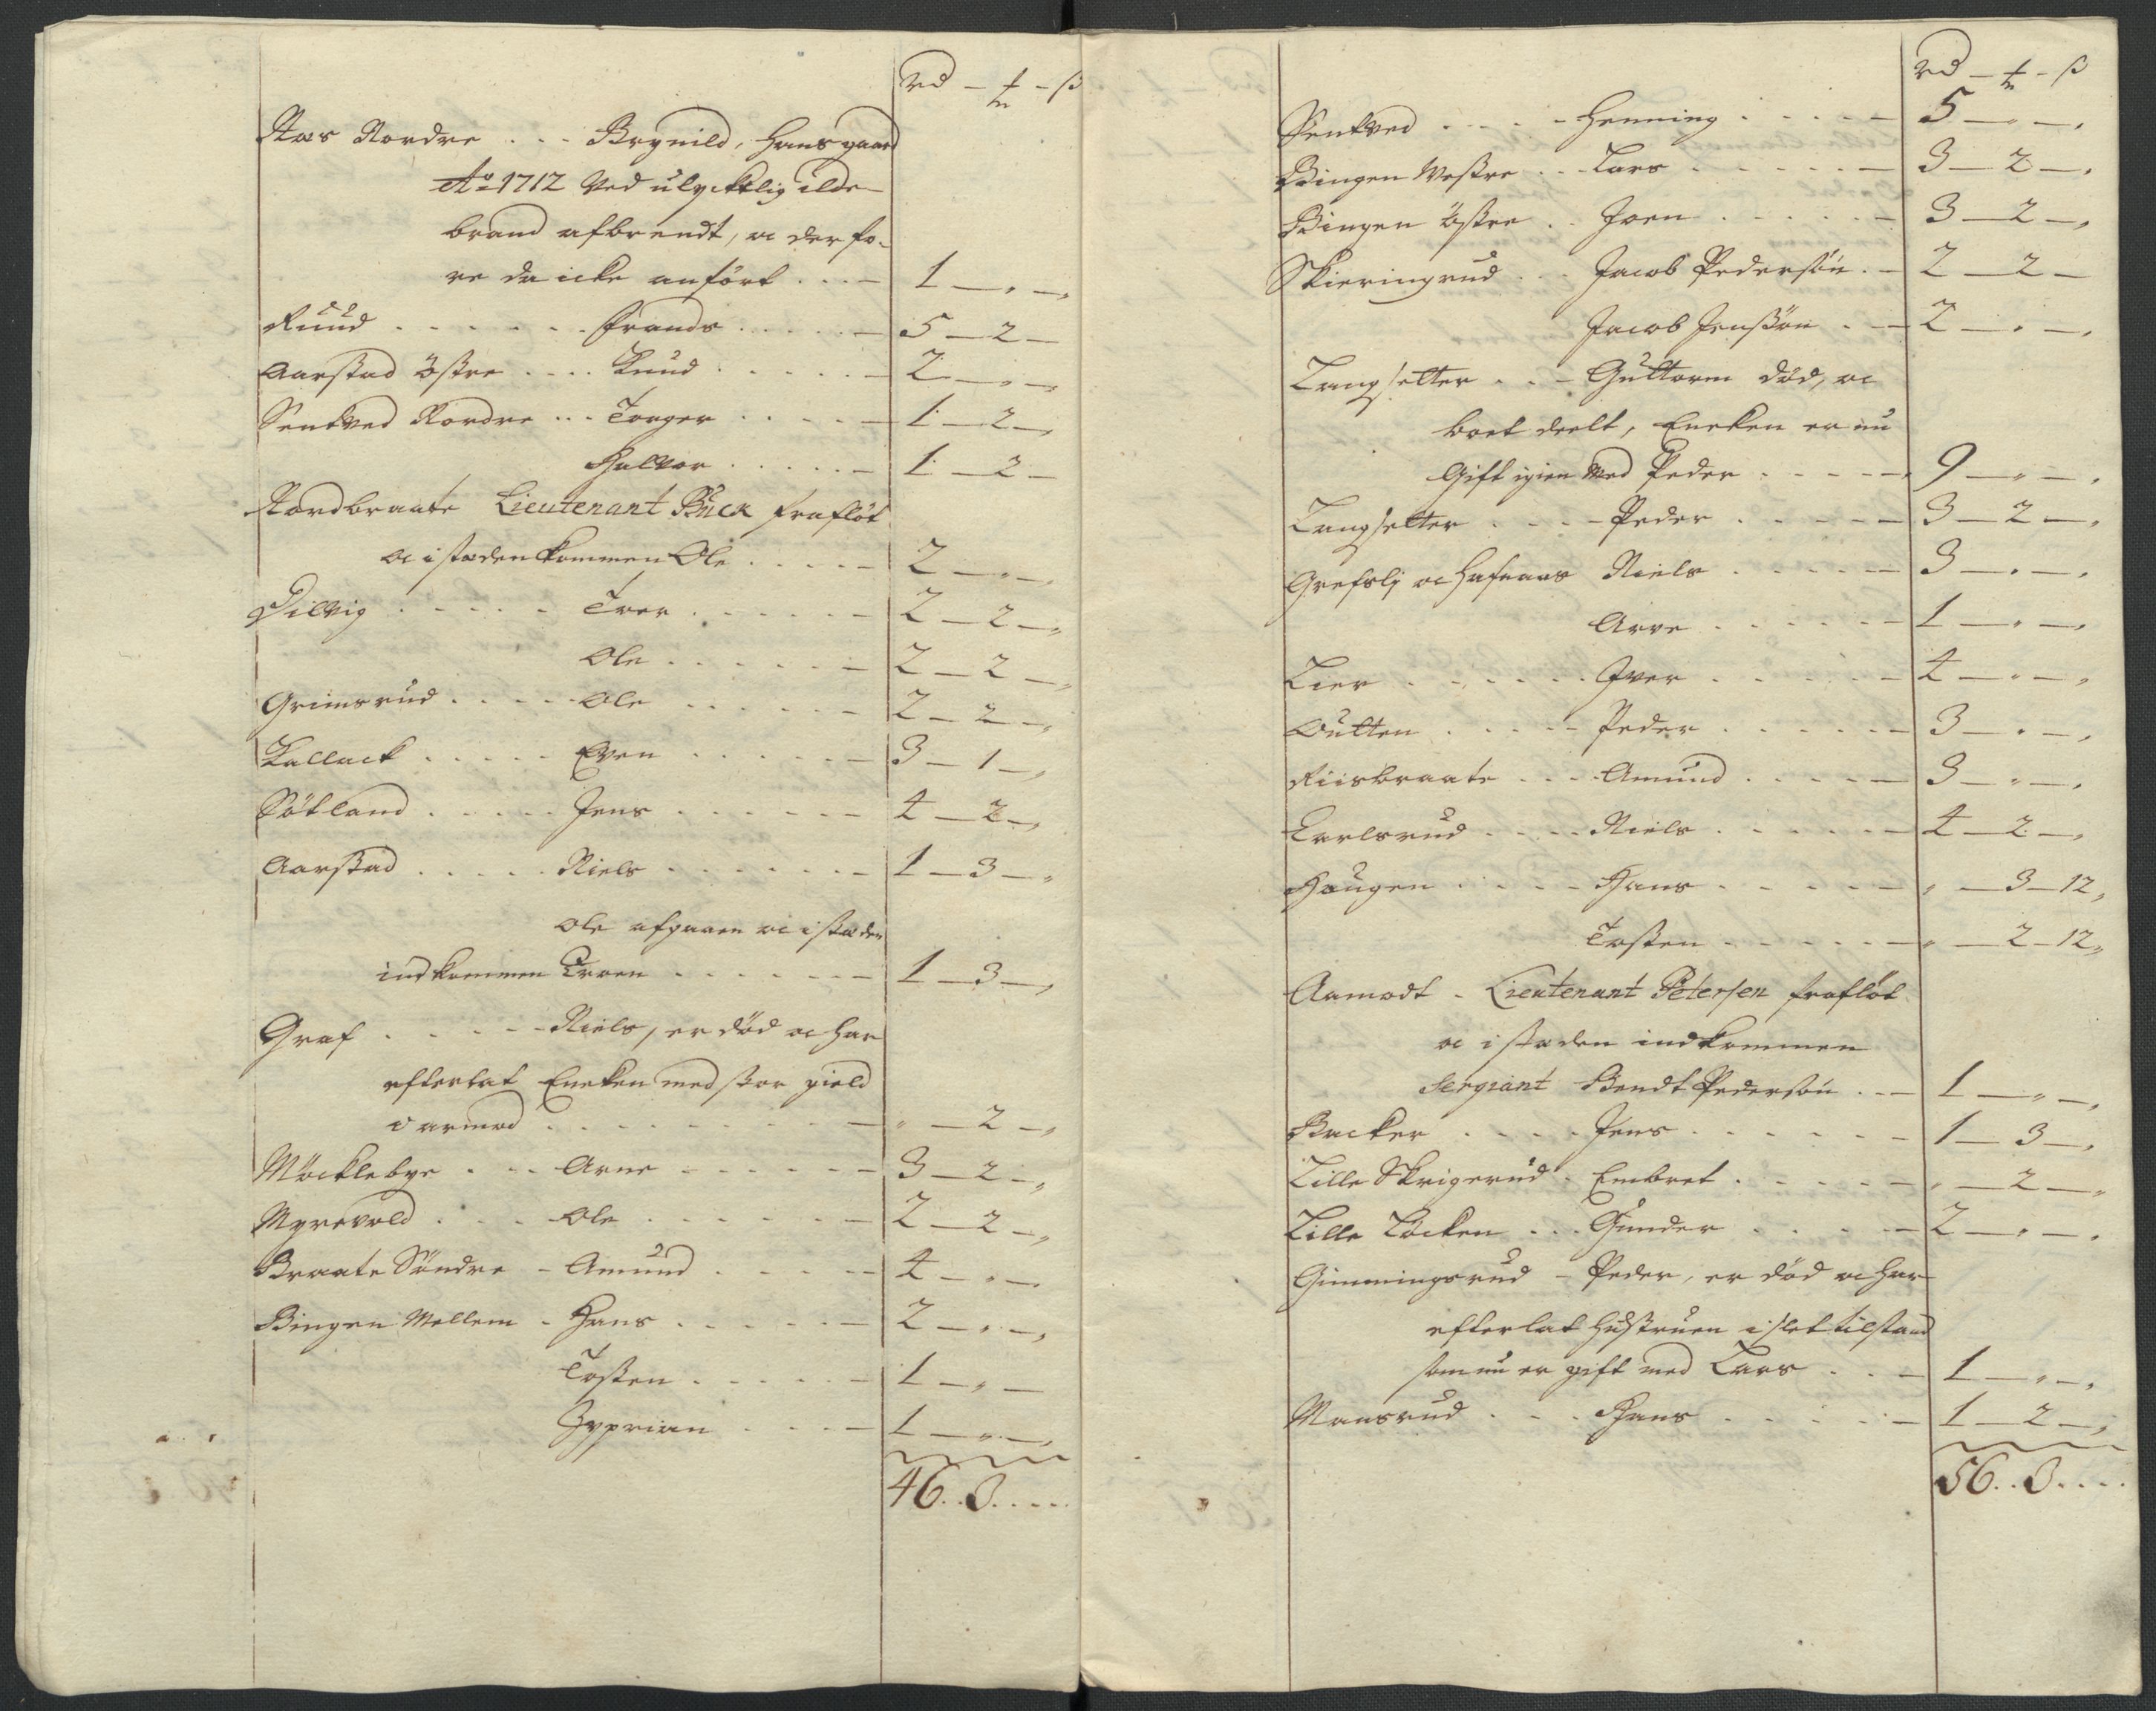 rd - t - ß
Naes Nordre . . - Brynild, hans gaard
Ao 1712 Ved ulyckelig ilde
brand afbrendt, oc der fo-
re da icke anfört . . . - 1 - „ - „
Ruud . . . . . . Frands . . . . . - 5 - 2 -
Aarstad Östre . . . . Knud . . . . . - 2 - „ - „
Sentved Nordre . . . Torger . . . . - 1 - 2 - „
Halvor . . . . . - 1 - 2 -
Nordbraate Lieutenant Buck frafløt
oc i staden kommen Ole . . . . . - 2 - „ - „
Dilvig . . . . . Iver . . . . . . - 2 - 2 - „
Ole . . . . . . - 2 - 2 - „
Grimsrud . . . . Ole . . . . . . - 2 - 2 - „
Kallack . . . . . Even . . . . . . - 3 - 1 - „
Sötland . . . . . Jens . . . . . . - 4 - 2 - „
Aarstad . . . . . Niels . . . . . . - 1 - 3 - „
Ole afgaaen oc i staden
indkommen Troen . . . . . . - 1 - 3 - „
Graf . . . . . Niels, er död oc har
efterlat Encken med stor gield
i armod . . . . . . . . . - „ - 2 - „
Möcklebye . . . Arne . . . . . . - 3 - 2 - „
Myrevold . . . . Ole . . . . . . - 2 - 2 - „
Braate Söndre - Amund . . . . . - 4 - „ -
Bingen Mellem - Hans . . . . . - 2 - „ - „
Tosten . . . . . - 1 - „ -
Zyprian . . . . - 1 - „ - „
46 . . 3 . . . .
rd - t - ß
Sentved . . . . - Henning . . . . . - 5 - „ - „
Bingen Westre . . . Lars . . . . . . - 3 - 2 - „
Bingen Östre . . Joen . . . . . . - 3 - 2 - „
Skieringrud . . . Jacob Pedersön . - 2 - 2 -
Jacob Jenssön . - 2 - „ - „
Langsetter . . - Guttorm död, oc
boet deelt, Encken er nu
Gift igien Med Peder . . . . - 9 - „ - „
Langsetter . . . . Peder . . . . . - 3 - 2 - „
Grefslj oc Hafnaas Niels . . . . . - 3 - „ - „
Arve . . . . . . - 1 - „ - „
Lier . . . . . . . Iver . . . . . . - 4 - „ - „
Outten . . . . . Peder . . . . . . - 3 - „ - „
Riisbraate . . . . Amund . . . . . - 3 - „ - „
Karlsrud . . . . Niels . . . . . . - 4 - 2 - „
Haugen . . . . . Hans . . . . . - „ - 3 - 12 „
Tosten . . . . . . - „ - 2 - 12 „
Aamodt - Lieutenant Petersen frafløt
oc i staden indkommen
Sergiant Bendt Pedersön . . - 1 - „ - „
Backer . . . . . Jens . . . . . . - 1 - 3 - „
Lille Skrigerud . Embret . . . . . - „ - 2 - „
Lille Löcken . . . Gunder . . . . - 2 - „ - „
Gimmingsrud - Peder, er död oc har
efterlat Hustruen i slet tilstand
som nu er gift med Lars . . - 1 - „ - „
Mansrud . . . Hans . . . . . . - 1 - 2 - „
56 . . 3 . . . .